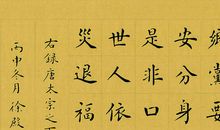 鄉黨要
安分身
是非口
世人依
災退福
右錄唐太宗之
丙申冬月徐殿